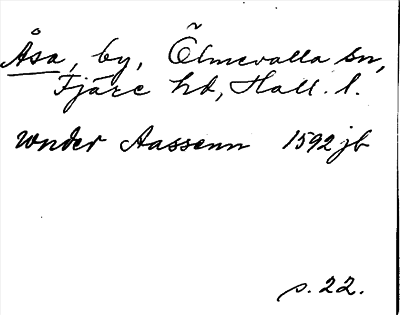 Åsa, by, Ölmevalla sn,
Fjäre hd, Hall. l.
wnder Aassenn 1592 jb
s. 22.